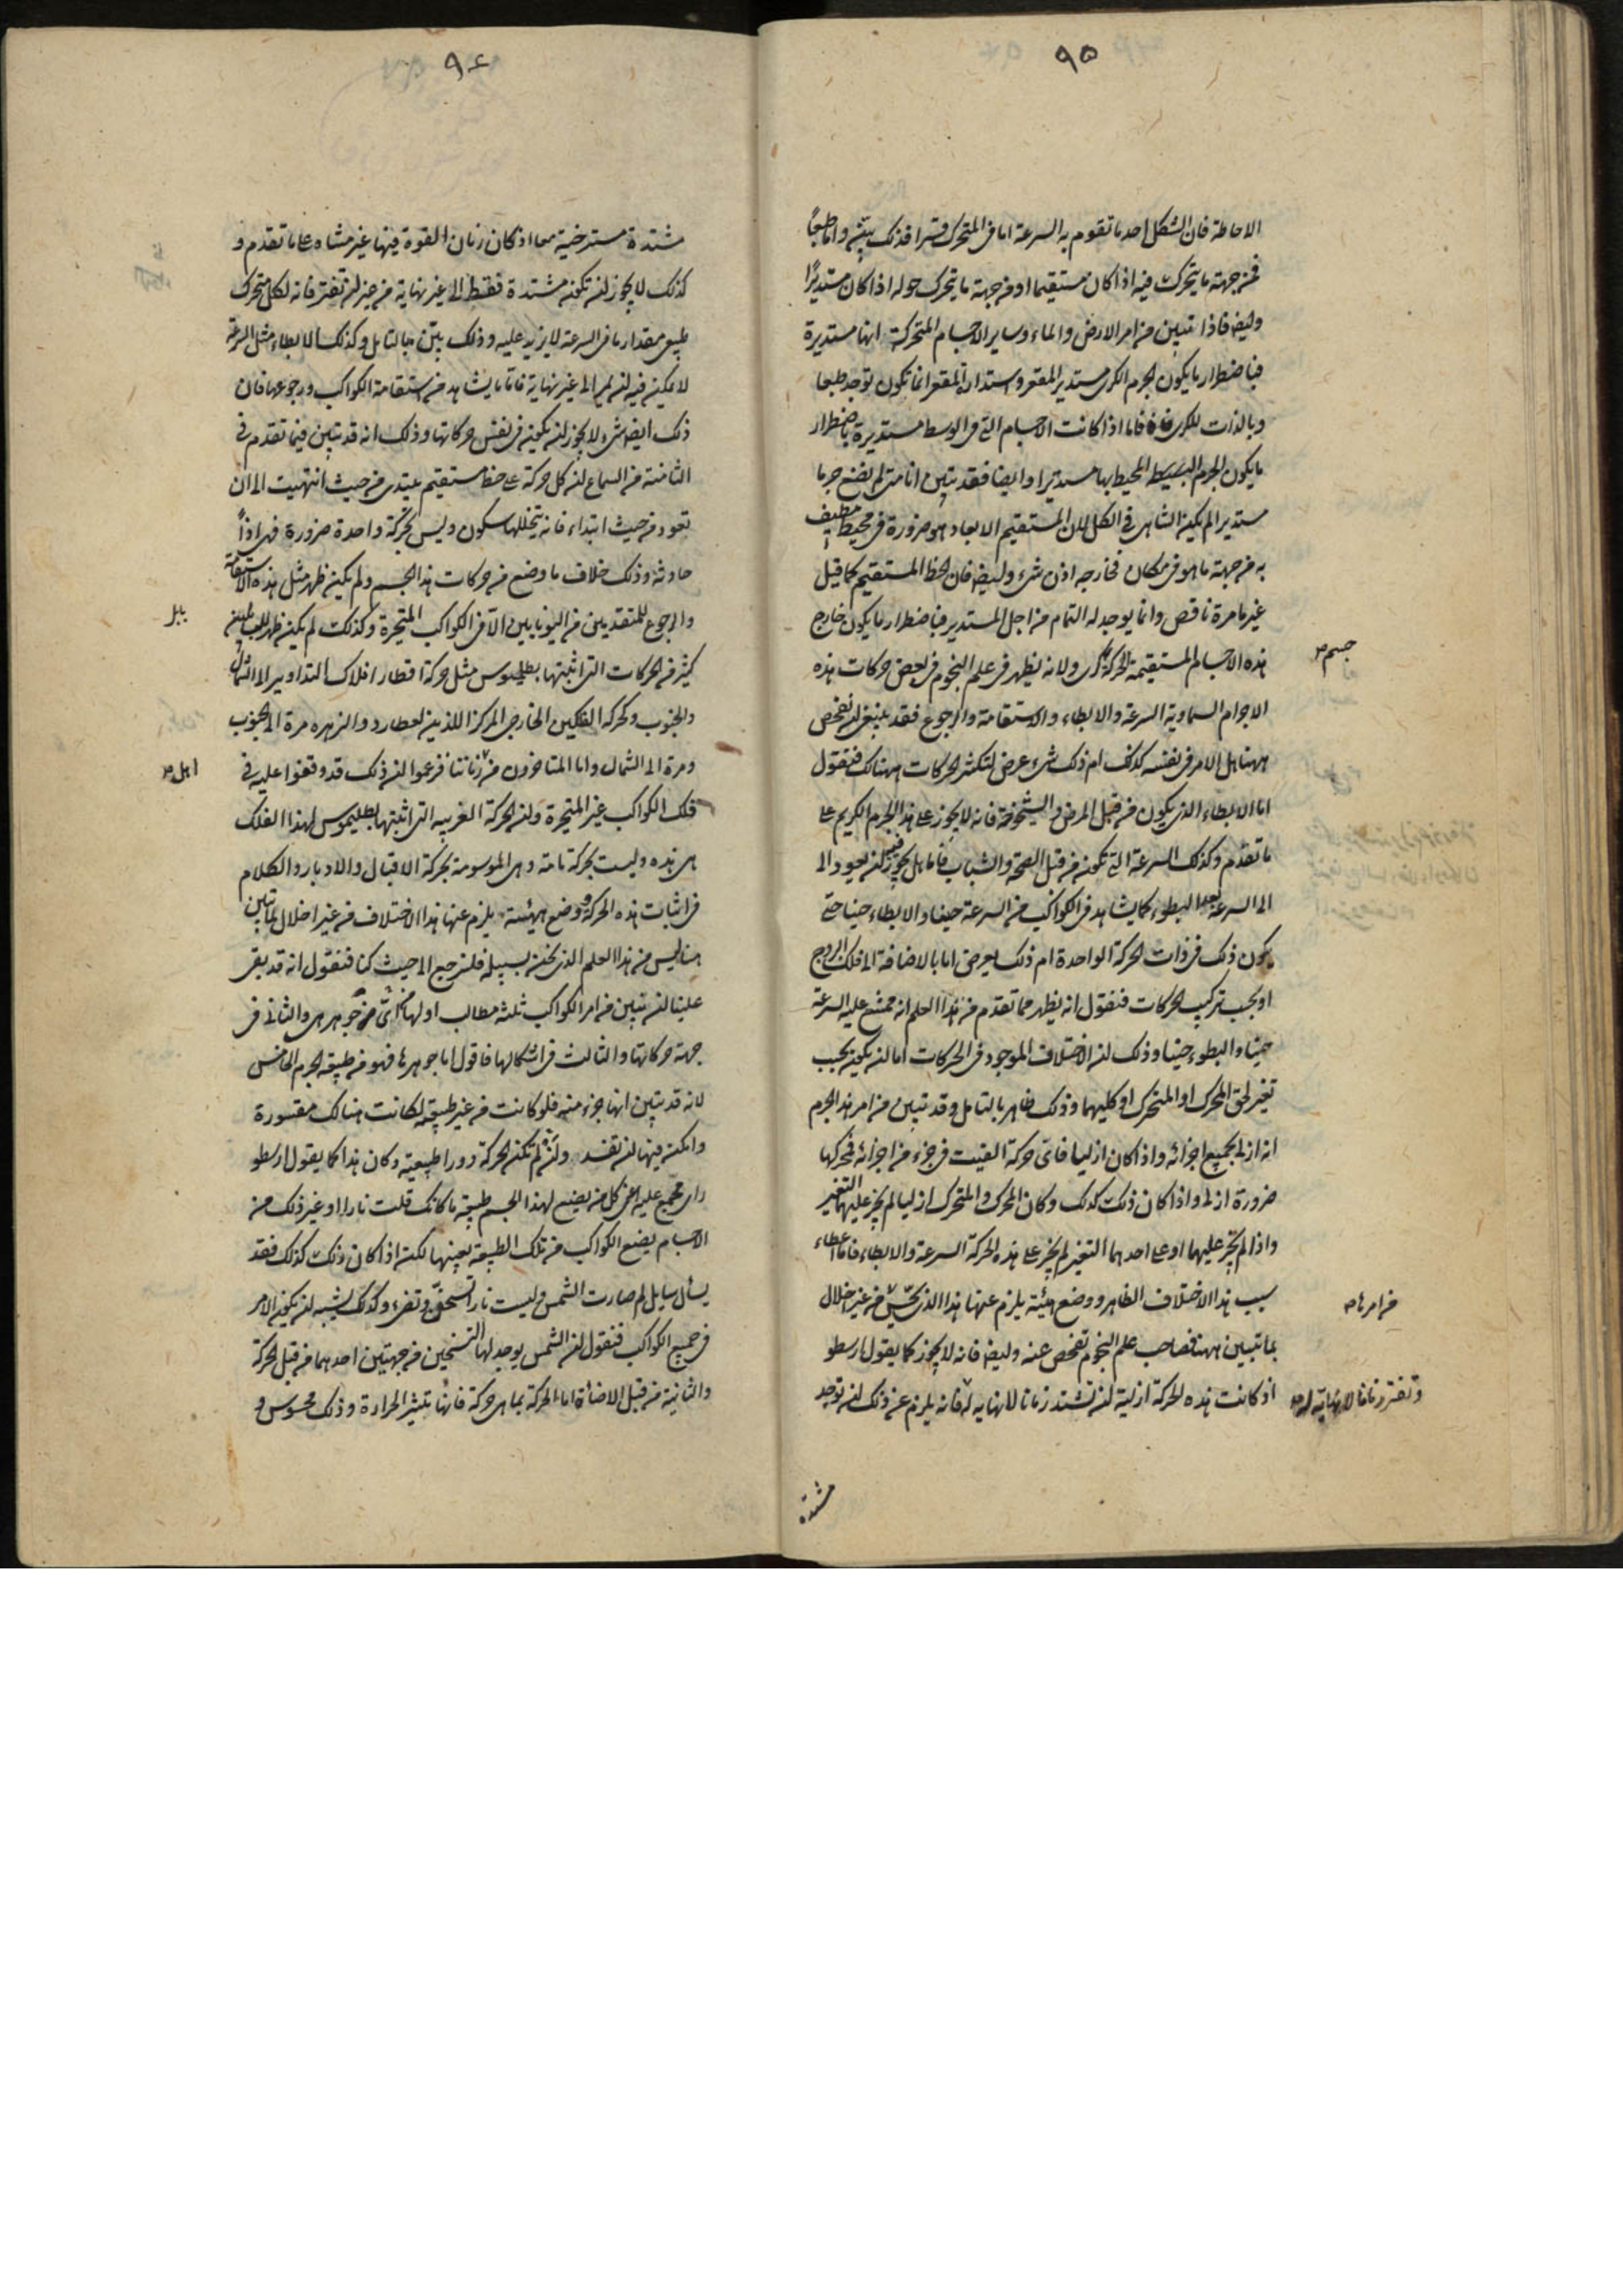 ٩٥
الاحاطة فان الشكل احد ما تقوم به السرعة اما فى المتحرك قسرا فذلك بيّن واما طبعاً
فمن جهة ما يتحرك فيه اذا كان مستقيما او من جهة ما يتحرك حوله اذا كان مستديرًا
وايضا فاذا تبين من امر الارض والماء وساير الاجسام المتحركة انها مستديرة
فباضطرار ما يكون الجرم الكرى مستدير المقعر واستدارة المقعر انما تكون توجد طبعا
وبالذات للكرى فاما اذا كانت الاجسام التى فى الوسط مستديرة باضطرار
ما يكون الجرم البسيط المحيط بها مستديرا وايضا فقد تبين انا متى لم نضع جرما
مستديرا لم يكن التناهى فى الكل لان المستقيم الابعاد هو ضرورة فى محيط مطيف
به من جهة ما هو فى مكان فخارجه اذن شىء وايضا فان الخط المستقيم كما قيل
غير ما مرة ناقص وانما يوجد له التمام من اجل المستدير فباضطرار ما يكون خارج
هذه الاجسام المستقيمة الحركة كرى ولانه يظهر فى علم النجوم فى بعض حركات هذه
جسم
الاجرام السماوية السرعة والابطاء والاستقامة والرجوع فقد ينبغى ان نفحص
ههنا هل الامر فى نفسه كذلك ام ذلك شىء عرض لتكثر الحركات هناك فنقول
اما الابطاء الذى يكون من قبل المرض والشيخوخة فانه لا يجوز على هذا الجرم الكريم على
ما تقدم وكذلك السرعة التى تكون من قبل الصحة والشباب فاما هل يجوز فيه ان يعود الى
الى السرعة بعد البطوء كما يشاهد فى الكواكب من السرعة حينا والابطاء حينا حتى
يكون ذلك فى ذات الحركة الواحدة ام ذلك يعرض اما بالاضافة الى فلك البروج
او بحسب تركيب الحركات فنقول انه يظهر مما تقدم من هذا العلم انه ممتنع عليه السرعة
حينا والبطوء حينا وذلك ان الاختلاف الموجود فى الحركات اما ان يكون بحسب
تغير لحق المحرك او المتحرك او كليهما وذلك ظاهر بالتامل وقد تبين من امر هذا الجرم
انه ازلى بجميع اجزائه واذا كان ازليا فاى حركة الفيت فى جزء من اجزائه فمحركها
ضرورة ازلى واذا كان ذلك كذلك وكان المحرك والمتحرك ازليا لم يجز عليهما التغير
واذا لم يجز عليهما او على احدهما التغير لم يجز على هذه الحركة السرعة والابطاء فاما اعطاء
سبب هذا الاختلاف الظاهر ووضع هيئة يلزم عنها هذا الذى يحسّ من غير اخلال
من امرها
بما تبين ههنا فصاحب علم النجوم تفحص عنه وايضا فانه لا يجوز كما يقول ارسطو
اذ كانت هذه الحركة ازلية ان تشتد زمانا لا نهاية له فانه يلزم عن ذلك ان توجد
وتفتر زمانا لا نهاية له
مشتدة
٩٤
مشتدة مسترخية معا اذ كان زمان القوة فيها غير متناه على ما تقدم و
كذلك لا يجوز ان تكون مشتدة فقط الى غير نهاية من غير ان تفتر فانه لكل متحرك
طبيعى مقدار ما فى السرعة لا يزيد عليه وذلك بيّن بالتامل وكذلك الابطاء مثل السرعة
لا يمكن فيه ان يمر الى غير نهاية فاما ما يشاهد من استقامة الكواكب ورجوعها فان
ذلك ايضا شىء لا يجوز ان يكون فى نفس حركاتها وذلك انه قد تبين فيما تقدم فى
الثامنة من السماع ان كل حركة على خط مستقيم تبتدى من حيث انتهيت الى ان
تعود من حيث ابتداء فانه يتخللها سكون وليس بحركة واحدة ضرورة فهى اذاً
حادثة وذلك خلاف ما وضع من حركات هذا الجسم ولم يكن ظهر مثل هذه الاستقامة
والرجوع للمتقدمين من اليونانيين الا فى الكواكب المتحيرة وكذلك لم يكن ظهر
بابل
كثير من الحركات التى اثبتها بطلميوس مثل حركة اقطار افلاك التداوير الى الشمال
والجنوب وكحركة الفلكين الخارجى المركز اللذين لعطارد والزهره مرة الى الجنوب
ومرة الى الشمال واما المتاخرون من زماننا فزعموا ان ذلك قد وقفوا عليه فى
اهل
فلك الكواكب غير المتحيرة وان الحركة الغريبه التى اثبتها بطليموس لهذا الفلك
هى هذه وليست بحركة تامة وهى الموسومة بحركة الاقبال والادبار والكلام
فى اثبات هذه الحركة ووضع هيئة يلزم عنها هذا الاختلاف من غير اخلال بما تبين
هنا ليس من هذا العلم الذى نحن بسبيله فلنرجع الى حيث كنا فنقول انه قد بقى
علينا ان نبين من امر الكواكب ثلثه مطالب اولها من اى جوهر هى والثانى فى
جهة حركاتها والثالث فى اشكالها فاقول اما جوهرها فهو من طبيعة الجرم الخامس
لانه قد تبين انها جزء منه فلو كانت من غير طبيعته لكانت هنالك مقسورة
وامكن فيها ان تفسد وان لم تكن الحركة دورا طبيعية وكان هذا كما يقول ارسطو
راى مجمع عليه اعنى كل من يضع لهذا الجسم طبيعة ما كانك قلت نارا او غير ذلك من
الاجسام يضع الكواكب من تلك الطبيعة بعينها لكن اذا كان ذلك كذلك فقد
يسأل سايل لم صارت الشمس وليست نارا تسخن وتضىء وكذلك يشبه ان يكون الامر
فى جميع الكواكب فنقول ان الشمس يوجد لها التسخين من جهتين احدهما من قبل الحركة
والثانية من قبل الاضائة اما الحركة بما هى حركة فانها تثير الحرارة وذلك محسوس و